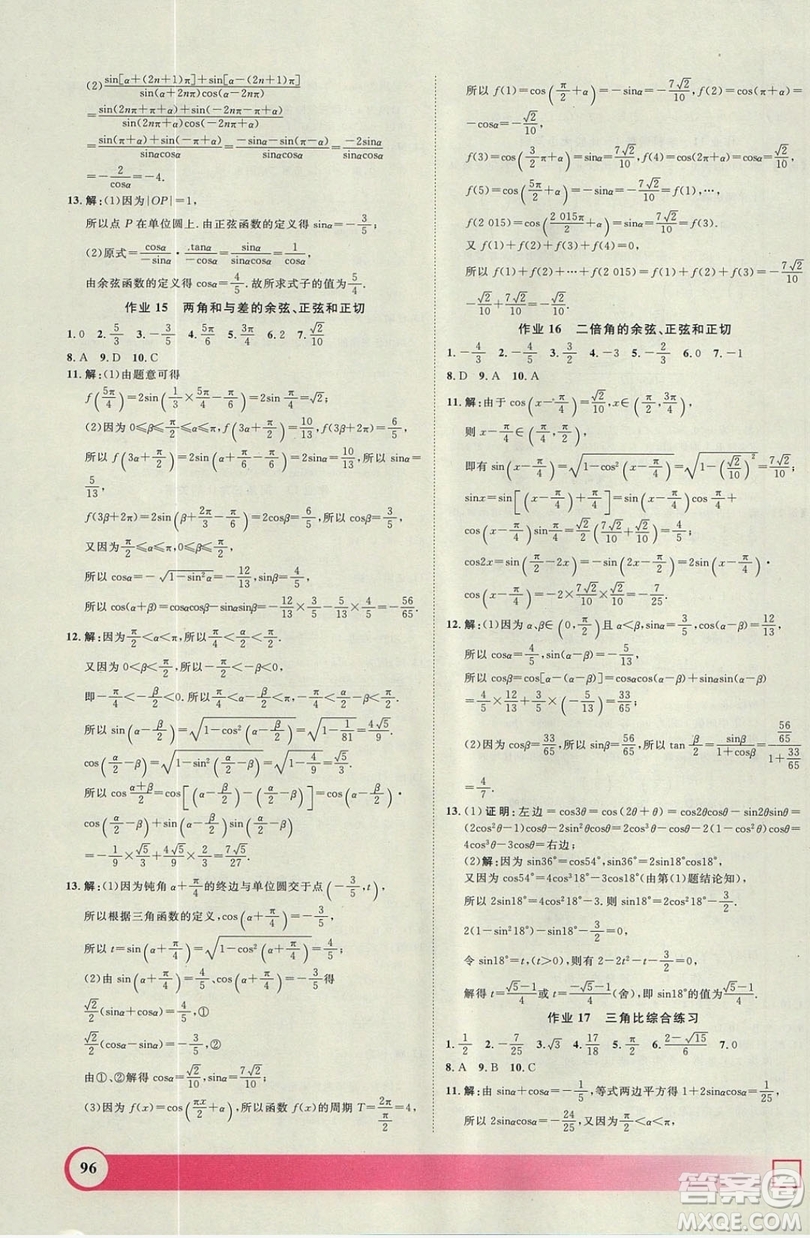 (2) sin[α+(2n+1)π]+sin[α-(2n+1)π] / sin(α+2nπ)cos(α-2nπ)
= sin(2nπ+π+α)+sin(-2nπ-π+α) / sin(2nπ+α)cos(-2nπ+α)
= sin(π+α)+sin(-π+α) / sinαcosα = -sinα-sin(π-α) / sinαcosα = -2sinα / sinαcosα
=-2/cosα=-4.
13. 解:(1)因为|OP|=1,
所以点 P 在单位圆上.由正弦函数的定义得 sinα=-3/5;
(2)原式=cosα/-sinα · -tanα/-cosα=sinα/sinαcosα=1/cosα.
由余弦函数的定义得 cosα=4/5.故所求式子的值为 5/4.
作业 15 两角和与差的余弦、正弦和正切
1. 0 2. 5/3 3. -3/4 4. 5π/6 5. 3π/4 6. 2 7. √2/10
8. A 9. D 10. C
11. 解:(1)由题意可得
f(5π/4)=2sin(1/3×5π/4-π/6)=2sin π/4=√2;
(2)因为 0≤β≤π/2≤α≤π, f(3α+π/2)=10/13, f(3β+2π)=6/5,
所以 f(3α+π/2)=2sin(α+π/6-π/6)=2sinα=10/13,所以 sinα=
5/13,
f(3β+2π)=2sin(β+2π/3-π/6)=2cosβ=6/5,所以 cosβ=3/5,
又因为π/2≤α≤π,0≤β≤π/2,
所以 cosα=-√(1-sin²α)=-12/13,sinβ=4/5,
所以 cos(α+β)=cosαcosβ-sinαsinβ=-12/13×3/5-5/13×4/5=-56/65.
12. 解:因为π/2<α<π,0<β<π/2.
又因为 0<β/2<π/4,所以-π/2<-β<0.
即-π/4<-β/2<0.所以π/4<α-β/2<π,-π/4<α/2-β<π/2.
所以 sin(α-β/2)=√(1-cos²(α-β/2))=√(1-1/81)=4√5/9.
cos(α/2-β)=√(1-sin²(α/2-β))=√(1-4/9)=√5/3.
所以 cos (α+β)/2=cos[(α-β/2)-(α/2-β)]
=cos(α-β/2)cos(α/2-β)+sin(α-β/2)sin(α/2-β)
=-1/9×√5/3+4√5/9×2/3=7√5/27.
13. 解:(1)因为钝角 α+π/4的终边与单位圆交于点(-3/5,t),
所以根据三角函数的定义,cos(α+π/4)=-3/5,
所以 t=sin(α+π/4)=√(1-cos²(α+π/4))=4/5;
(2)由 sin(α+π/4)=4/5和 cos(α+π/4)=-3/5得
√2/2(sinα+cosα)=4/5,①
√2/2(cosα-sinα)=-3/5,②
由①、②解得 cosα=√2/10,sinα=7√2/10;
(3)因为 f(x)=cos(πx/2+α),所以函数 f(x)的周期 T=2π/(π/2)=4,
所以 f(1)=cos(π/2+α)=-sinα=-7√2/10, f(2)=cos(π+α)=
-cosα=-√2/10,
f(3)=cos(3π/2+α)=sinα=7√2/10, f(4)=cos(π+α)=√2/10,
f(5)=cos(5π/2+α)=-sinα=-7√2/10,…,
f(2 015)=cos(2 015π/2+α)=sinα=7√2/10=f(3).
又 f(1)+f(2)+f(3)+f(4)=0,
所以 f(1)+f(2)+…+f(2 015)=f(1)+f(2)+f(3)=-7√2/10
-√2/10+7√2/10=-√2/10.
作业 16 二倍角的余弦、正弦和正切
1. -4/3 2. -4/5 3. -2cos α/2 4. 4/5 5. -3 6. 0 7. -1
8. D 9. A 10. A
11. 解:由于 cos(x-π/4)=√2/10,x∈(π/2,3π/4),
则 x-π/4∈(π/4,π/2),
即有 sin(x-π/4)=√(1-cos²(x-π/4))=√(1-(√2/10)²)=7√2/10,
sinx=sin[(x-π/4)+π/4]=sin(x-π/4)cos π/4+
cos(x-π/4)sin π/4=√2/2(7√2/10+√2/10)=4/5;
cos2x=sin(π/2-2x)=-2sin(x-π/4)·
cos(x-π/4)=-2×7√2/10×√2/10=-7/25.
12. 解:(1)因为 α、β∈(0,π/2)且 α<β,sinα=3/5,cos(α-β)=12/13,
所以 cosα=4/5,sin(α-β)=-5/13,
所以 cosβ=cos[α-(α-β)]=cosαcos(α-β)+sinαsin(α-β)
=4/5×12/13+3/5×(-5/13)=33/65;
(2)因为 cosβ=33/65,所以 sinβ=56/65,所以 tan β/2=sinβ/1+cosβ=(56/65)/(1+33/65)
=4/7.
13. (1)证明:左边=cos3θ=cos(2θ+θ)=cos2θcosθ-sin2θsinθ=
(2cos²θ-1)cosθ-2sin²θcosθ=(2cos²θ-1)cosθ-2(1-cos²θ)cosθ=
4cos³θ-3cosθ=右边;
(2)解:因为 sin36°=cos54°,sin36°=2sin18°cos18°,
又因为 cos54°=4cos³18°-3cos18°(由第(1)题结论知),
所以 2sin18°=4cos²18°-3.则 sin18°=2cos²18°-3/2,
2(1-sin²18°)-sin18°-3/2=0,
令 sin18°=t,(t>0),则 2-2t²-t-3/2=0,
解得 t=√5-1/4或 t=-√5-1/4(舍),所以 sin18°的值为√5-1/4.
作业 17 三角比综合练习
1. 1/2 2. -7/25 3. √3 4. 17/18 5. 4/3 6. 2-√15/6 7. 0
8. A 9. B 10. C
11. 解:由 sinα+cosα=-1/5,等式两边平方得 1+2sinαcosα=1/25,
所以 2sinαcosα=-24/25,又因为 π/2<α<π,
96
答案圈
MXQE.COM